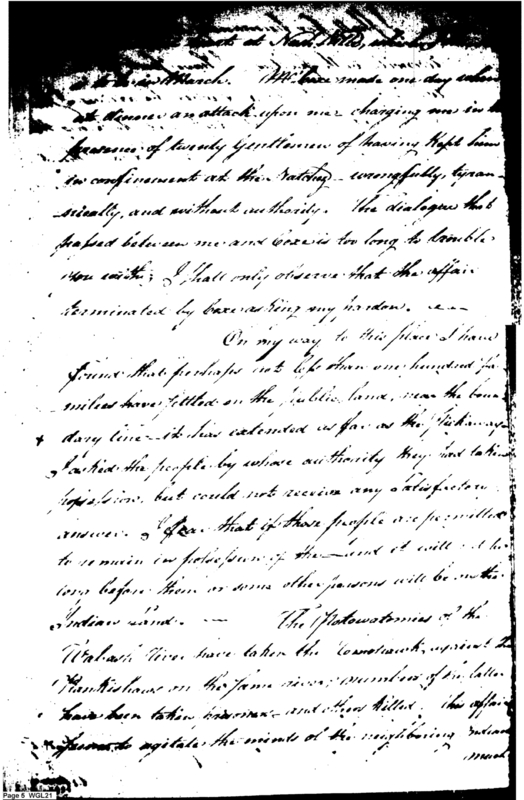 at Nashville, which
in March. Mr Coxe made one day when
at dinner an attack upon me charging me in the
presence of twenty Gentlemen of having kept him
in confinement at the Natchez wrongfully, tyran-
nically, and without authority. The dialogue that
passed between me and Coxe is too long to trouble
you with; I shall only observe that the affair
terminated by Coxe asking my pardon.
On my way to this place I have
found that perhaps not less than one hundred fa
milies have settled on the public land, near the boun
dary line — it has extended as far as the
I asked the people by whose authority they had taken
possession, but could not receive any satisfactory
answer. I fear that if those people are permitted
to remain in possession of the land it will not be
long before them or some other persons will be on the
Indian Land. — The Potowatomies of the
Wabash River have taken the Tomohawk, against the
Piankishaws on the same river; number of the latter
have been taken prisoner and others killed. This affair
seems to agitate the minds of the neighboring Indians
much
Page 5 WGL21